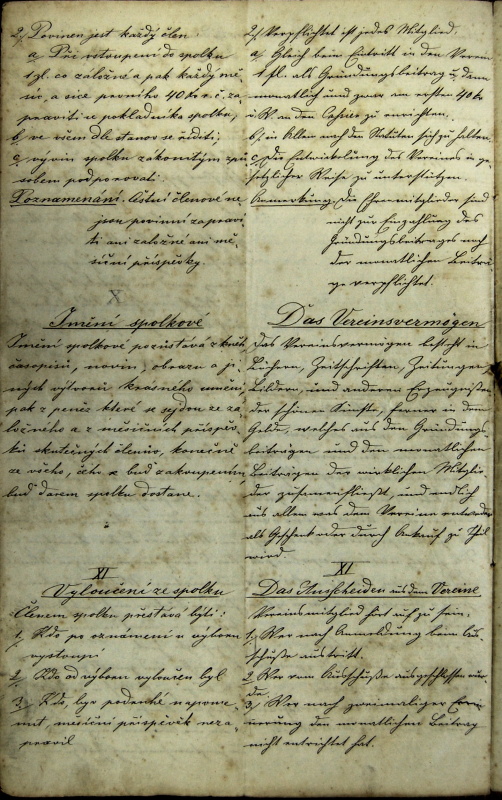 2, Povinen jest každý člen:
a, Při vstoupení do spolku
1 zl. co založné a pak každý mě-
síc, a sice prvního 40 kr. r. č. za-
praviti u pokladníka spolku,
b, ve všem dle stanov se říditi,
c, vývin spolku zákonitým způ-
sobem podporovati.
Poznamenání. Čestní členové ne-
jsou povinni zapravi-
ti ani založné ani mě-
síční příspěvky.
X
Jmění spolkové
Jmění spolkové pozůstává z knih,
časopisů, novin, obrazů a ji-
ných výtvorů krásného umění,
pak z peněz které se sejdou ze za-
ložného a z měsíčních příspěv-
ků skutečných členův, konečně
ze všeho, čeho buď zakoupením,
buď darem spolku dostane.
XI
Vyloučení ze spolku
Členem spolku přestává býti:
1, Kdo po oznámení u výboru
vystoupí
2, Kdo od výboru vyloučen byl
3, Kdo, byv podruhé napome-
nut, měsíční příspěvek neza-
pravil
2, Verpflichtet ist jedes Mitglied.
a, Gleich beim Eintritt in den Verein
1 fl. als Gründungsbeitrag u. dann
monatlich und zwar im ersten 40 kr
ö. W. an den Cassier zu entrichten.
b, in Allem nach den Statuten sich zu halten
c, Die Entwickelung des Vereines in ge-
setzlicher Weise zu unterstützen.
Anmerkung. Die Ehrenmitglieder sind
nicht zur Einzahlung des
Gründungsbeitrages noch
der monatlichen Beiträ-
ge verpflichtet.
Das Vereinsvermögen
Das Vereinsvermögen besteht in
Büchern, Zeitschriften, Zeitungen,
Bildern und anderen Erzeugnissen
der schönen Künste, ferner in dem
Gelde, welches aus den Gründungs-
beiträgen und den monatlichen
Beiträgen der wirklichen Mitglie-
der zusammenfließt, und endlich
aus allem was dem Vereine entweder
als Geschenk oder durch Ankauf zu Theil
wird.
XI
Das Ausscheiden aus dem Vereine
Vereinsmitglied hört auf zu sein.
1, Wer nach Anmeldung beim Aus-
schuße austritt.
2 Wer vom Ausschuße ausgeschlossen wur-
de
3, Wer nach zweimaliger Erin-
nerung den monatlichen Beitrag
nicht entrichtet hat.